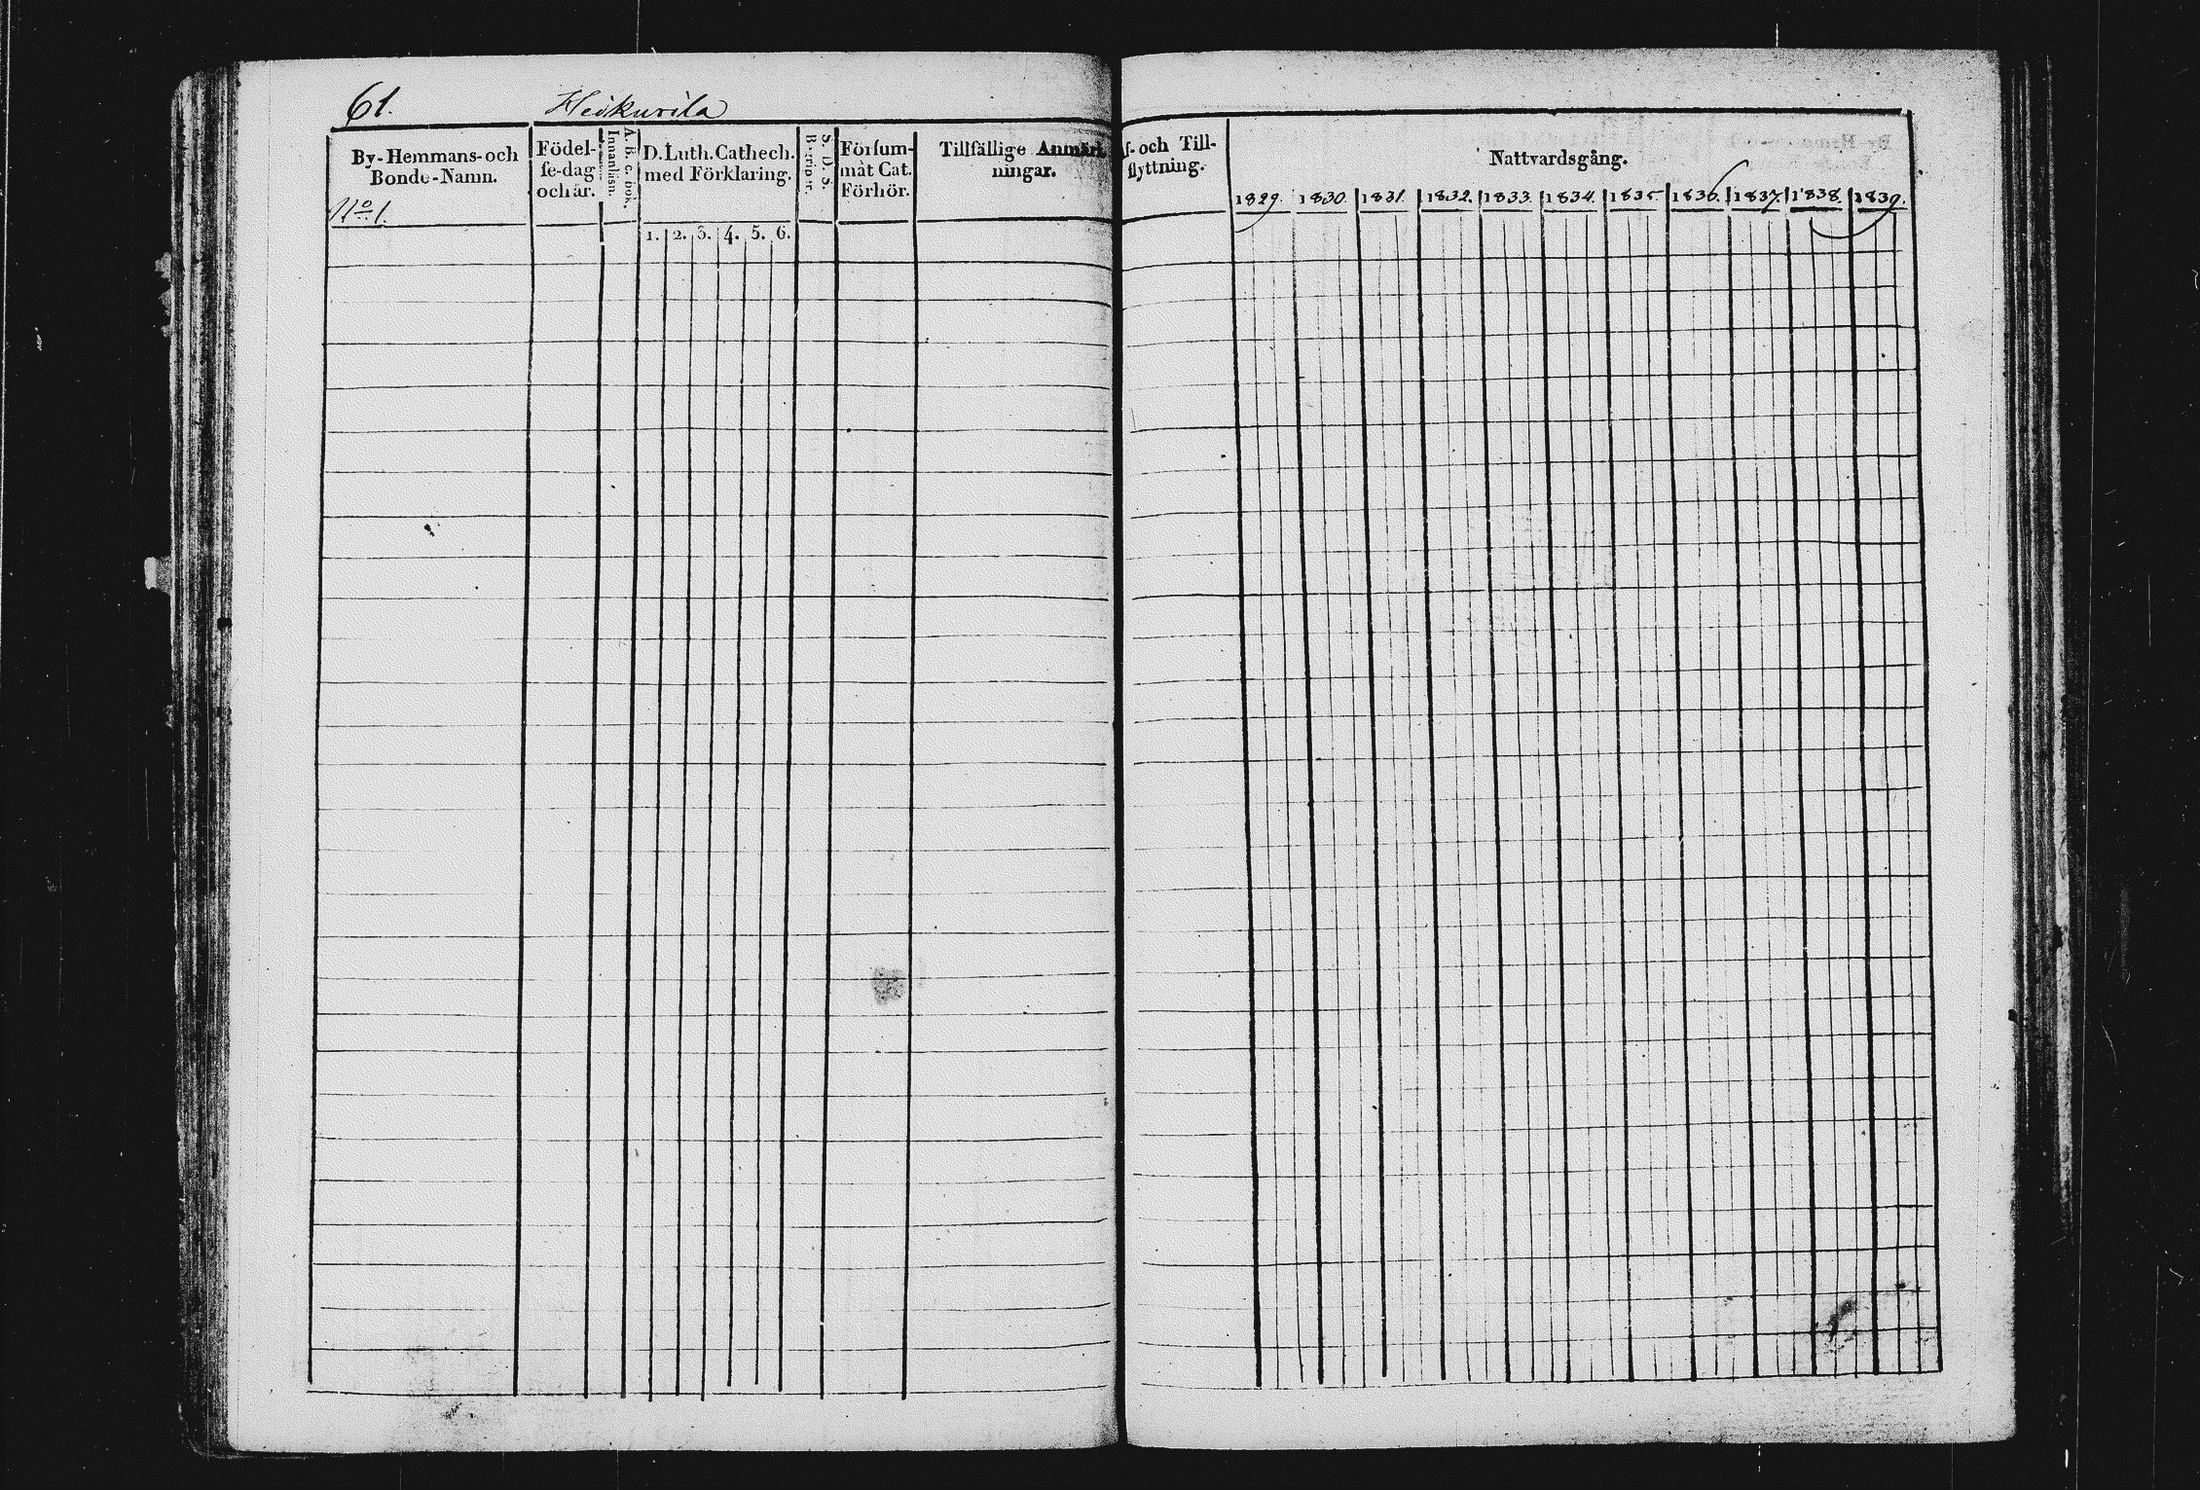 61. Heikurila
By-Hemmans-och
Bonde-Namn.
No. 1.
Födel-
se-dag
och år.
A. B. c. bok.
Innanläsn.
D. Luth. Cathech.
med Förklaring.
1. 2. 3. 4. 5. 6.
S. D. S.
Begriper.
Försum-
måt Cat.
Förhör.
Tillfällige Anmärk
ningar.
f- och Till-
flyttning.
Nattvardsgång.
1829. 1830. 1831. 1832. 1833. 1834. 1835. 1836. 1837. 1838. 1839.